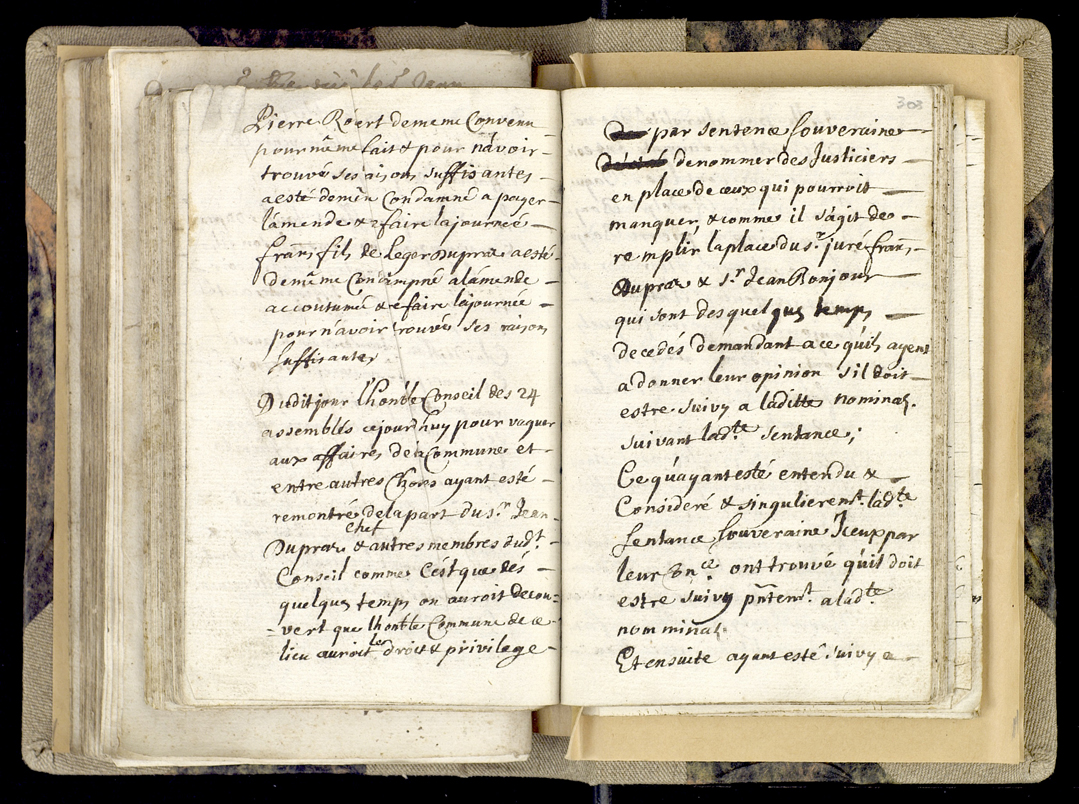 Pierre Róert de meme Convenu
pour même fait & pour n'avoir
trouvé ses raisons suffisantes
a esté de mēm Condamné a payer
lamende & refaire la journée
frans fils de Leger Dupraz a esté
de mēme Condampné a lamende
accoutumé & refaire la journée
pour n'avoir trouvé ses raisons
suffisantes
Dudit jour lhonble Conseil des 24
assemblés cejourdhuy pour vaquer
aux affaires de la Commune et
entre autres Choses ayant esté
remontré de la part du sr. Jean
chef
Dupraz & autres membres dudt.
Conseil comme C'est que dés
quelques temps on auroit decou-
-vert que lhonble Commune de ce
lieu auroit les droit & privilege
303
par sentence souveraine
de nommer des Justiciers
en place de ceux qui pourroit
manquer, & comme il s'agit de
remplir la place du sr. juré fran̄s
Dupraz & sr. Jean Bonjour
qui sont des quelques temps
decedés demandant a ce quils ayent
a donner leur opinion s'il doit
estre suivy a laditte nominaō.
suivant ladte. sentance;
Ce quayant esté entendu &
Consideré & singulieremt. ladte
Sentance souveraine Iceux par
leur ont trouvé qu'il doit
estre suivy pn̄temt. a ladte.
nominaō.
Et ensuite ayant esté suivy a